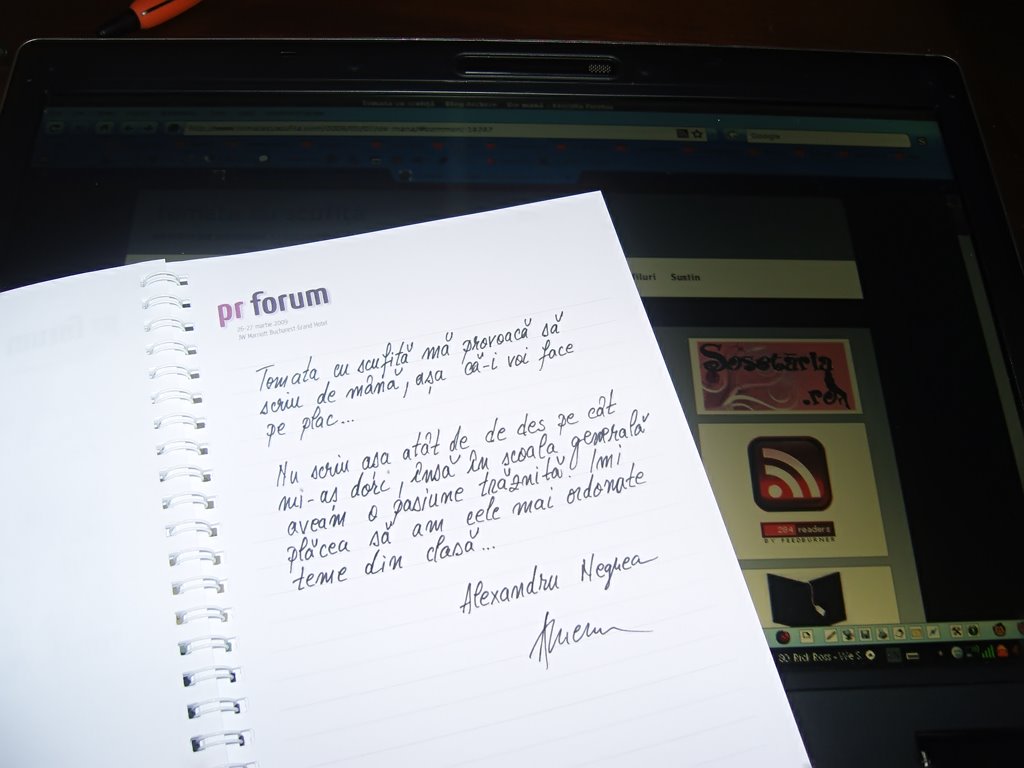 Google
Tomata cu scufita
Sustin
pr forum
26-27 martie 2009
JW Marriott Bucharest Grand Hotel
Tomata cu scufiță mă provoacă să
scriu de mână, așa că-i voi face
pe plac...
Nu scriu asa atât de de des pe cât
mi-aș dori, însă în scoala generală
aveam o pasiune trăznită! Imi
plăcea să am cele mai ordonate
teme din clasă...
Alexandru Negrea
Sosetăria
.ro
284 readers
BY FEEDBURNER
80 Rick Ross - We S